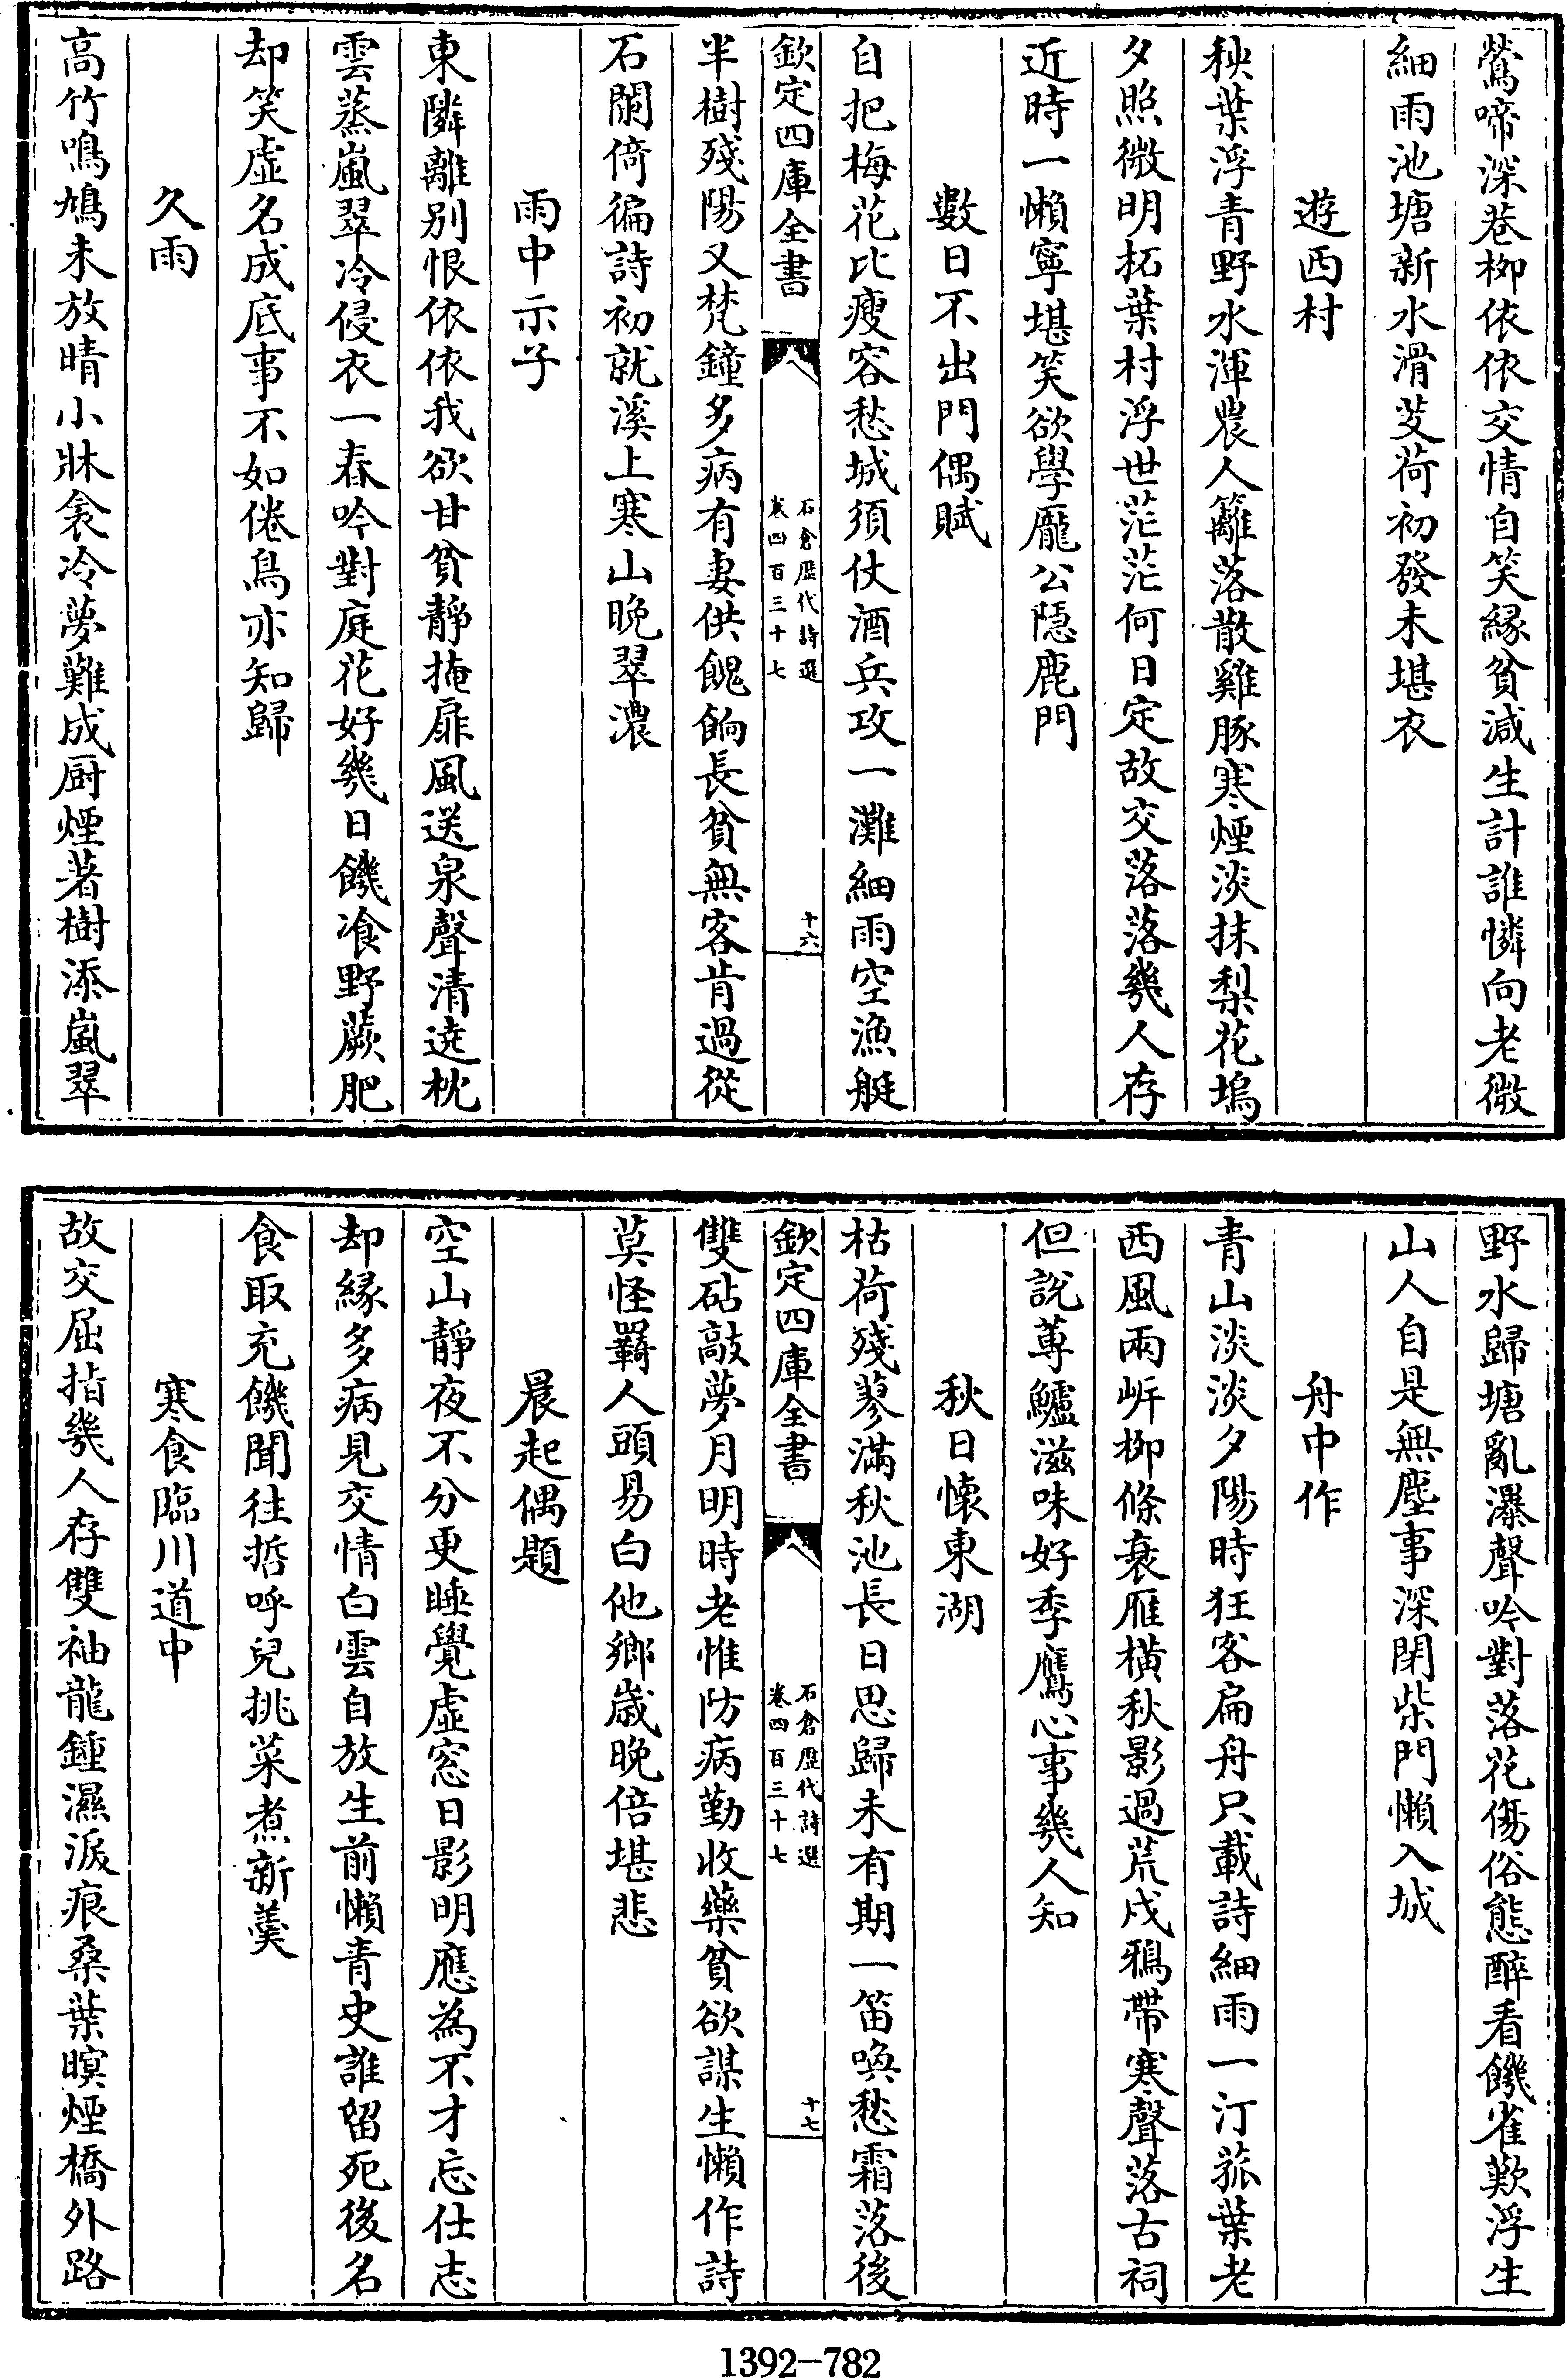 鶯啼深巷柳依依交情自笑緣貧減生計誰憐向老微
細雨池塘新水滑芰荷初發未堪衣
遊西村
秧葉浮青野水渾農人籬落散雞豚寒煙淡抹梨花塢
夕照微明柘葉村浮世茫茫何日定故交落落幾人存
近時一懶寧堪笑欲學龐公隱鹿門
數日不出門偶賦
自把梅花比瘦容愁城須仗酒兵攻一灘細雨空漁艇
欽定四庫全書
石倉歷代詩選
卷四百三十七
十六
半樹殘陽又梵鐘多病有妻供餽餉長貧無客肯過從
石闌倚徧詩初就溪上寒山晚翠濃
雨中示子
東隣離别恨依依我欲甘貧靜掩扉風送泉聲清遶枕
雲蒸嵐翠冷侵衣一春吟對庭花好幾日饑飡野蕨肥
却笑虛名成底事不如倦鳥亦知歸
久雨
高竹鳴鳩未放晴小牀衾冷夢難成厨煙著樹添嵐翠
野水歸塘亂瀑聲吟對落花傷俗態醉看饑雀歎浮生
山人自是無塵事深閉柴門懶入城
舟中作
青山淡淡夕陽時狂客扁舟只載詩細雨一汀菰葉老
西風兩岍柳條衰雁橫秋影過荒戍鴉帶寒聲落古祠
但說蓴鱸滋味好季鷹心事幾人知
秋日懷東湖
枯荷殘蓼滿秋池長日思歸未有期一笛喚愁霜落後
欽定四庫全書
石倉歷代詩選
卷四百三十七
十七
雙砧敲夢月明時老惟防病勤收藥貧欲謀生懶作詩
莫怪羈人頭易白他鄉歲晚倍堪悲
晨起偶題
空山靜夜不分更睡覺虛窓日影明應為不才忘仕志
却緣多病見交情白雲自放生前懶青史誰留死後名
食取充饑聞往哲呼兒挑菜煮新羹
寒食臨川道中
故交屈指幾人存雙袖龍鍾濕淚痕桑葉暝煙橋外路
1392-782